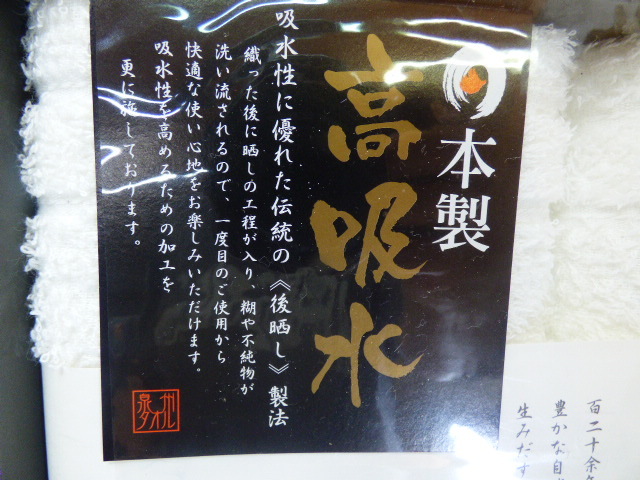 日本製
高吸水
吸水性に優れた伝統の《後晒し》製法
織った後に晒しの工程が入り、糊や不純物が
洗い流されるので、一度目のご使用から
快適な使い心地をお楽しみいただけます。
吸水性を高めるための加工を
更に施しております。
泉州タオル
百二十余年
豊かな自
生みだす